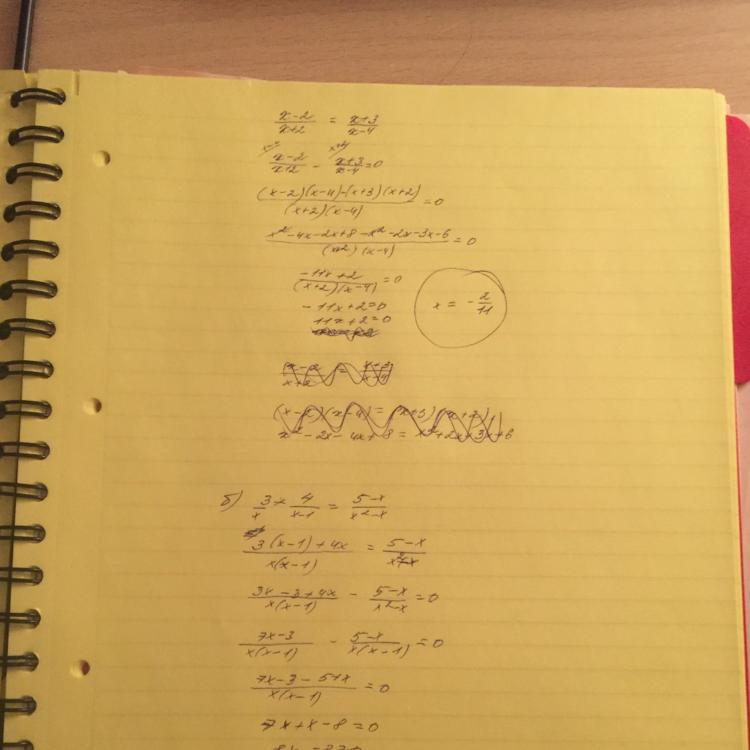 (x-2)/(x+2) = (x+3)/(x-4)
(x-2)/(x+2) - (x+3)/(x-4) = 0
((x-2)(x-4)-(x+3)(x+2))/((x+2)(x-4)) = 0
(x²-4x-2x+8-x²-2x-3x-6)/((x+2)(x-4)) = 0
(-11x+2)/((x+2)(x-4)) = 0
-11x+2=0
11x+2=0
x = -2/11
(x-2)/(x+2) = (x+3)/(x-4)
(x-2)(x-4) = (x+3)(x+2)
x²-2x-4x+8 = x²+2x+3x+6
б) 3/x + 4/(x-1) = (5-x)/(x²-x)
(3(x-1)+4x)/(x(x-1)) = (5-x)/(x²-x)
(3x-3+4x)/(x(x-1)) - (5-x)/(x²-x) = 0
(7x-3)/(x(x-1)) - (5-x)/(x(x-1)) = 0
(7x-3-5+x)/(x(x-1)) = 0
7x+x-8=0